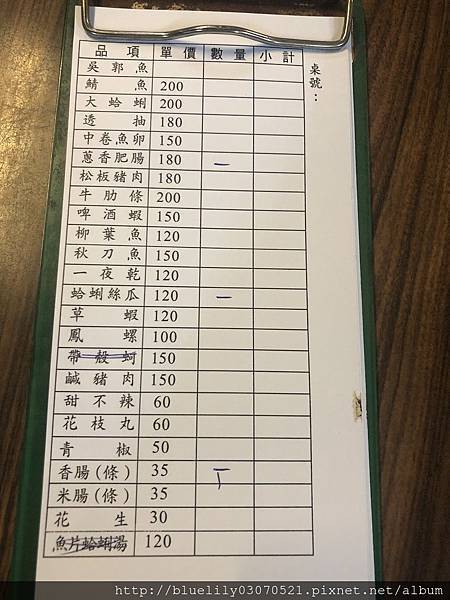 品項 單價 數量 小計
桌號：
吳郭魚
鯖魚 200
大蛤蜊 200
透抽 180
中卷魚卵 150
蔥香肥腸 180 一
松板豬肉 180
牛肋條 200
啤酒蝦 150
柳葉魚 120
秋刀魚 150
一夜乾 120
蛤蜊絲瓜 120 一
草蝦 120
鳳螺 100
帶殼蚵 150
鹹豬肉 150
甜不辣 60
花枝丸 60
青椒 50
香腸(條) 35 丅
米腸(條) 35
花生 30
魚片蛤蜊湯 120
http://bluelily03070521.pixnet.net/album